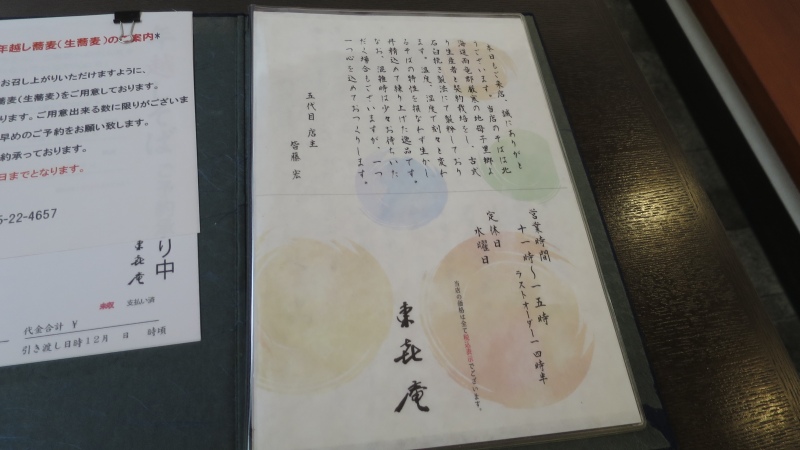 年越し蕎麦(生蕎麦)のご案内*
お召し上がりいただけますように、
蕎麦(生蕎麦)をご用意しております。
ります。ご用意出来る数に限りがございま
早めのご予約をお願い致します。
約承っております。
日までとなります。
5-22-4657
り中
東㐂庵
未収 支払い済
代金合計 ¥
引き渡し日時12月 日 時頃
本日もご来店、誠にありがと
うございます。当店のそばは北
海道雨竜郡厳寒の地母子里郷よ
り生産者と契約栽培をし、古式
石臼挽き製法にて製粉しており
ます。温度、湿度で刻々と変わ
るそばの特性を損なわず生かし
丹精込めて練り上げた逸品です。
なお、混雑時は少々お待ちいた
だく場合もございますが、一つ
一つ心を込めておつくりします。
五代目 店主
皆藤 宏
営業時間
十一時〜一五時
ラストオーダー一四時半
定休日
水曜日
当店の価格は全て税込表示でございます。
東㐂庵